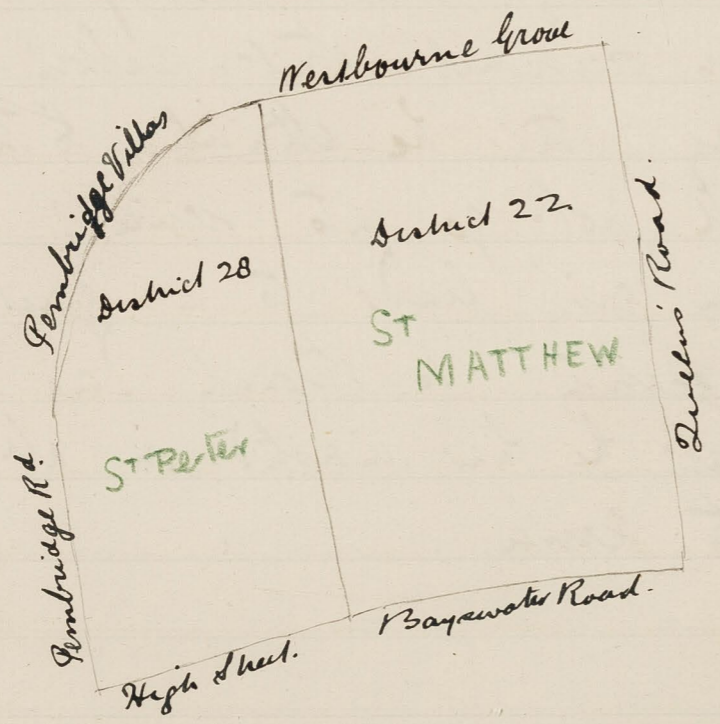 Westbourne Grove
Pembridge Villas
District 22
District 28
Queens' Road.
St
MATTHEW
St Peter
Pembridge Rd.
Bayswater Road.
High Street.